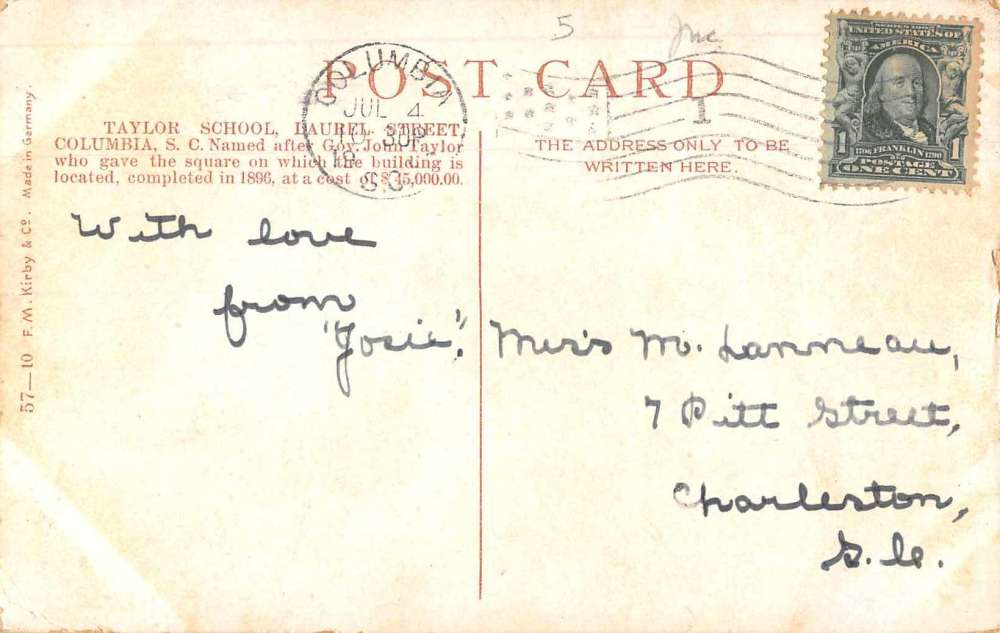 5
POST CARD
COLUMBIA
JUL 4
S.C.
1
SERIES 1902
UNITED STATES OF
AMERICA
1706 FRANKLIN 1790
POSTAGE
1 ONE CENT 1
TAYLOR SCHOOL, LAUREL STREET,
COLUMBIA, S. C. Named after Gov. John Taylor
who gave the square on which the building is
located, completed in 1896, at a cost of $ 45,000.00.
THE ADDRESS ONLY TO BE
WRITTEN HERE.
57—10 F. M. Kirby & Co. Made in Germany.
With love
from
"Josie".
Miss M. Lanneau,
7 Pitt Street,
Charleston,
S.C.